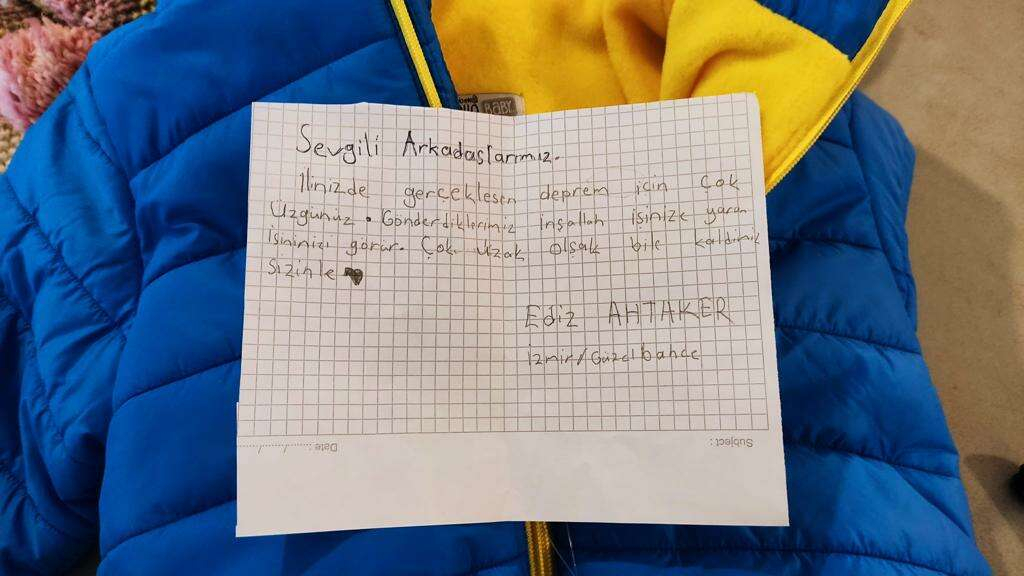 BABY
Sevgili Arkadaşlarımız.
İlinizde gerçekleşen deprem için çok
Üzgünüz. Gönderdiklerimiz inşallah işinize yarar
İşininizi görür. Çok uzak olsak bile kalbimiz
Sizinle
Ediz AHTAKER
İzmir/Güzelbahçe
Subject:
Date: ....../....../......